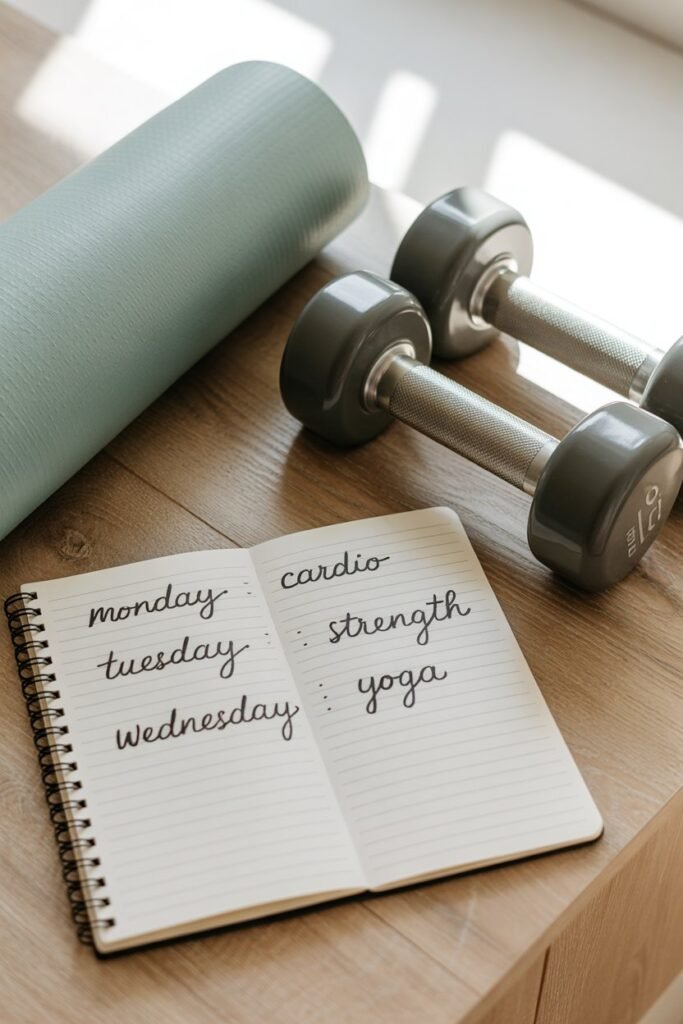 monday : cardio
tuesday : strength
wednesday : yoga